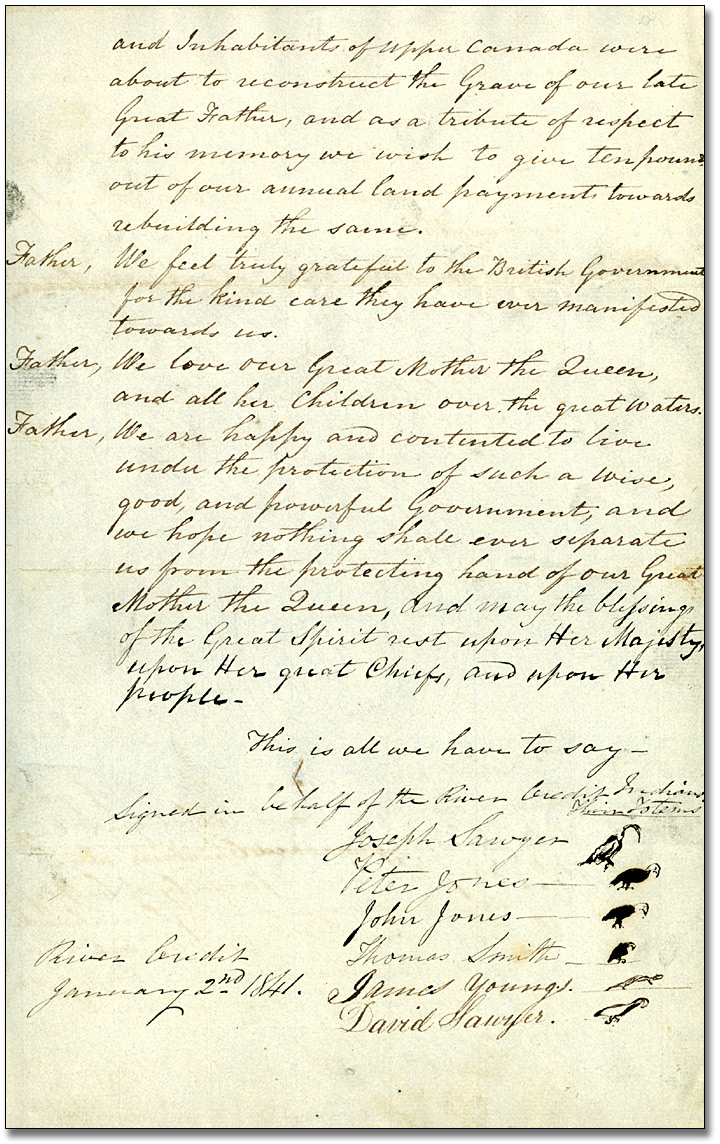 and Inhabitants of Upper Canada were
about to reconstruct the Grave of our late
Great Father, and as a tribute of respect
to his memory we wish to give ten pounds
out of our annual land payments towards
rebuilding the same.
Father, We feel truly grateful to the British Government
for the kind care they have ever manifested
towards us.
Father, We love our Great Mother the Queen,
and all her Children over the great Waters.
Father, We are happy and contented to live
under the protection of such a wise,
good, and powerful Government; and
we hope nothing shall ever separate
us from the protecting hand of our Great
Mother the Queen, and may the blessings
of the Great Spirit rest upon Her Majesty,
upon Her great Chiefs, and upon Her
people-
This is all we have to say-
Signed in behalf of the River Credit Indians
Their Totems
Joseph Sawyer
Peter Jones-
John Jones-
Thomas Smith-
James Youngs.
David Sawyer.
River Credit
January 2nd 1841.